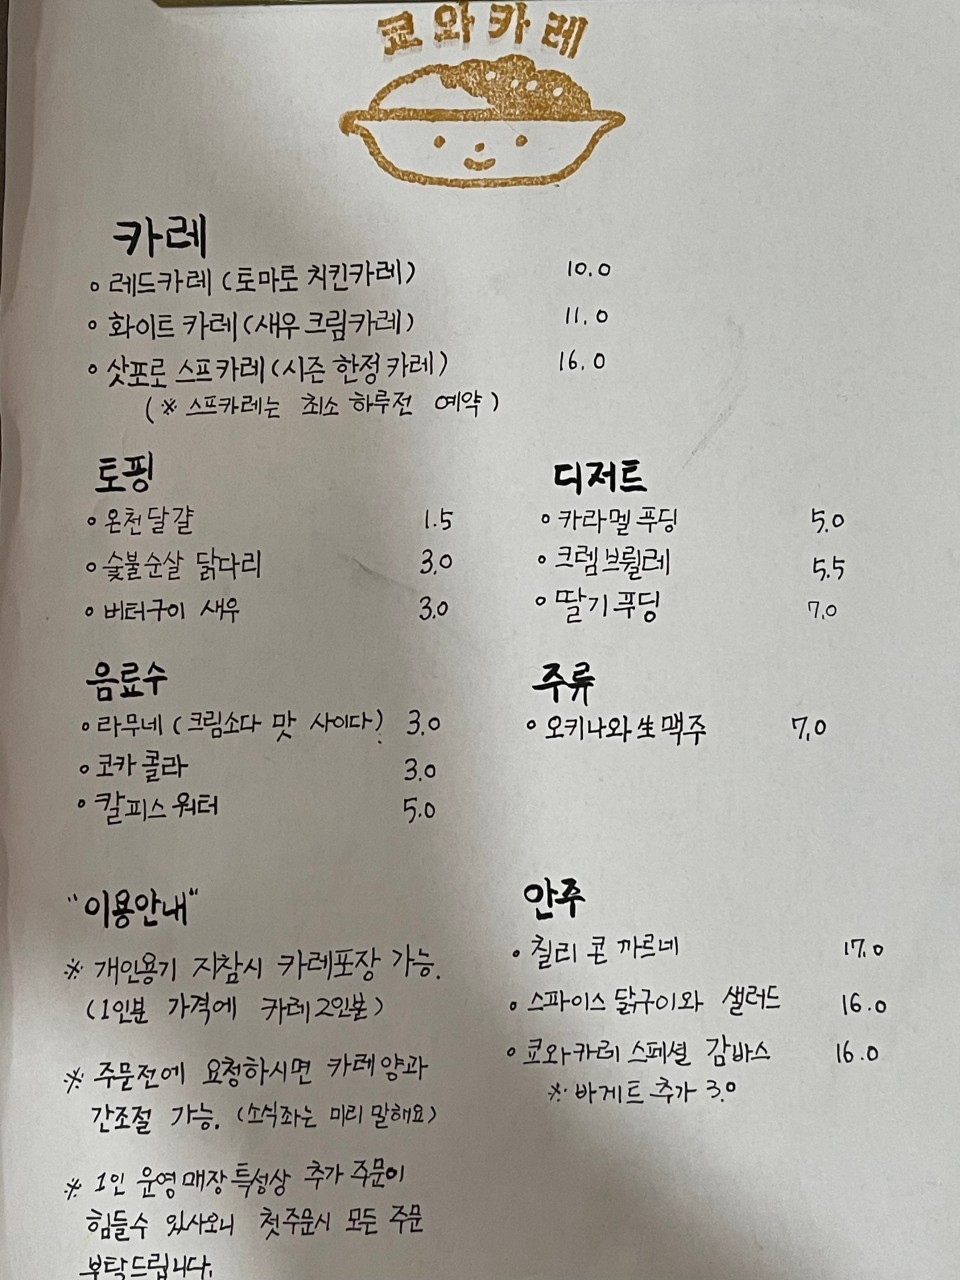 쿄와카레
카레
○ 레드카레 (토마토 치킨카레) 10.0
○ 화이트 카레 (새우 크림카레) 11.0
○ 삿포로 스프카레 (시즌 한정 카레) 16.0
(※ 스프카레는 최소 하루전 예약)
토핑
○ 온천달걀 1.5
○ 숯불순살 닭다리 3.0
○ 버터구이 새우 3.0
디저트
○ 카라멜푸딩 5.0
○ 크렘브륄레 5.5
○ 딸기푸딩 7.0
음료수
○ 라무네 (크림소다 맛 사이다) 3.0
○ 코카콜라 3.0
○ 칼피스워터 5.0
주류
○ 오키나와生맥주 7.0
"이용안내"
※ 개인용기 지참시 카레포장 가능.
(1인분 가격에 카레2인분)
※ 주문전에 요청하시면 카레양과
간조절 가능. (소식좌는 미리 말해요)
※ 1인 운영매장특성상 추가 주문이
힘들수 있사오니 첫주문시 모든 주문
부탁드립니다.
안주
○ 칠리 콘 까르네 17.0
○ 스파이스 닭구이와 샐러드 16.0
○ 쿄와카레 스페셜 감바스 16.0
※ 바게트 추가 3.0